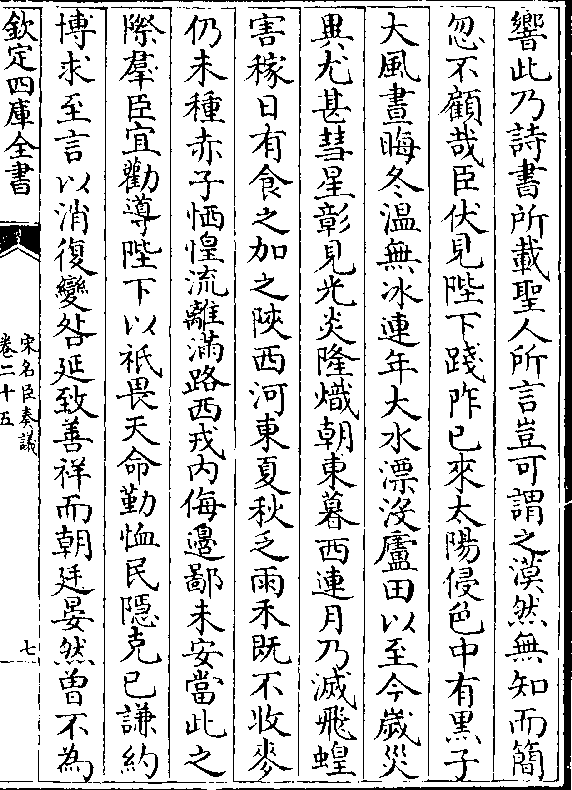 響此乃詩書所載聖人所言豈可謂之漠然無知而簡
忽不顧哉臣伏見陛下踐阼已來太陽侵色中有黒子
大風晝晦冬溫無冰連年大水漂沒廬田以至今歲災
異尤甚彗星彰見光炎隆熾朝東暮西連月乃滅飛蝗
害稼日有食之加之陜西河東夏秋乏雨禾既不收麥
仍未種赤子恓惶流離滿路西戎内侮邊鄙未安當此之
際羣臣宜勸導陛下以祇畏天命勤恤民隠克已謙約
博求至言以消復變咎延致善祥而朝廷晏然曾不為
欽定四庫全書
宋名臣奏議
卷二十五
七